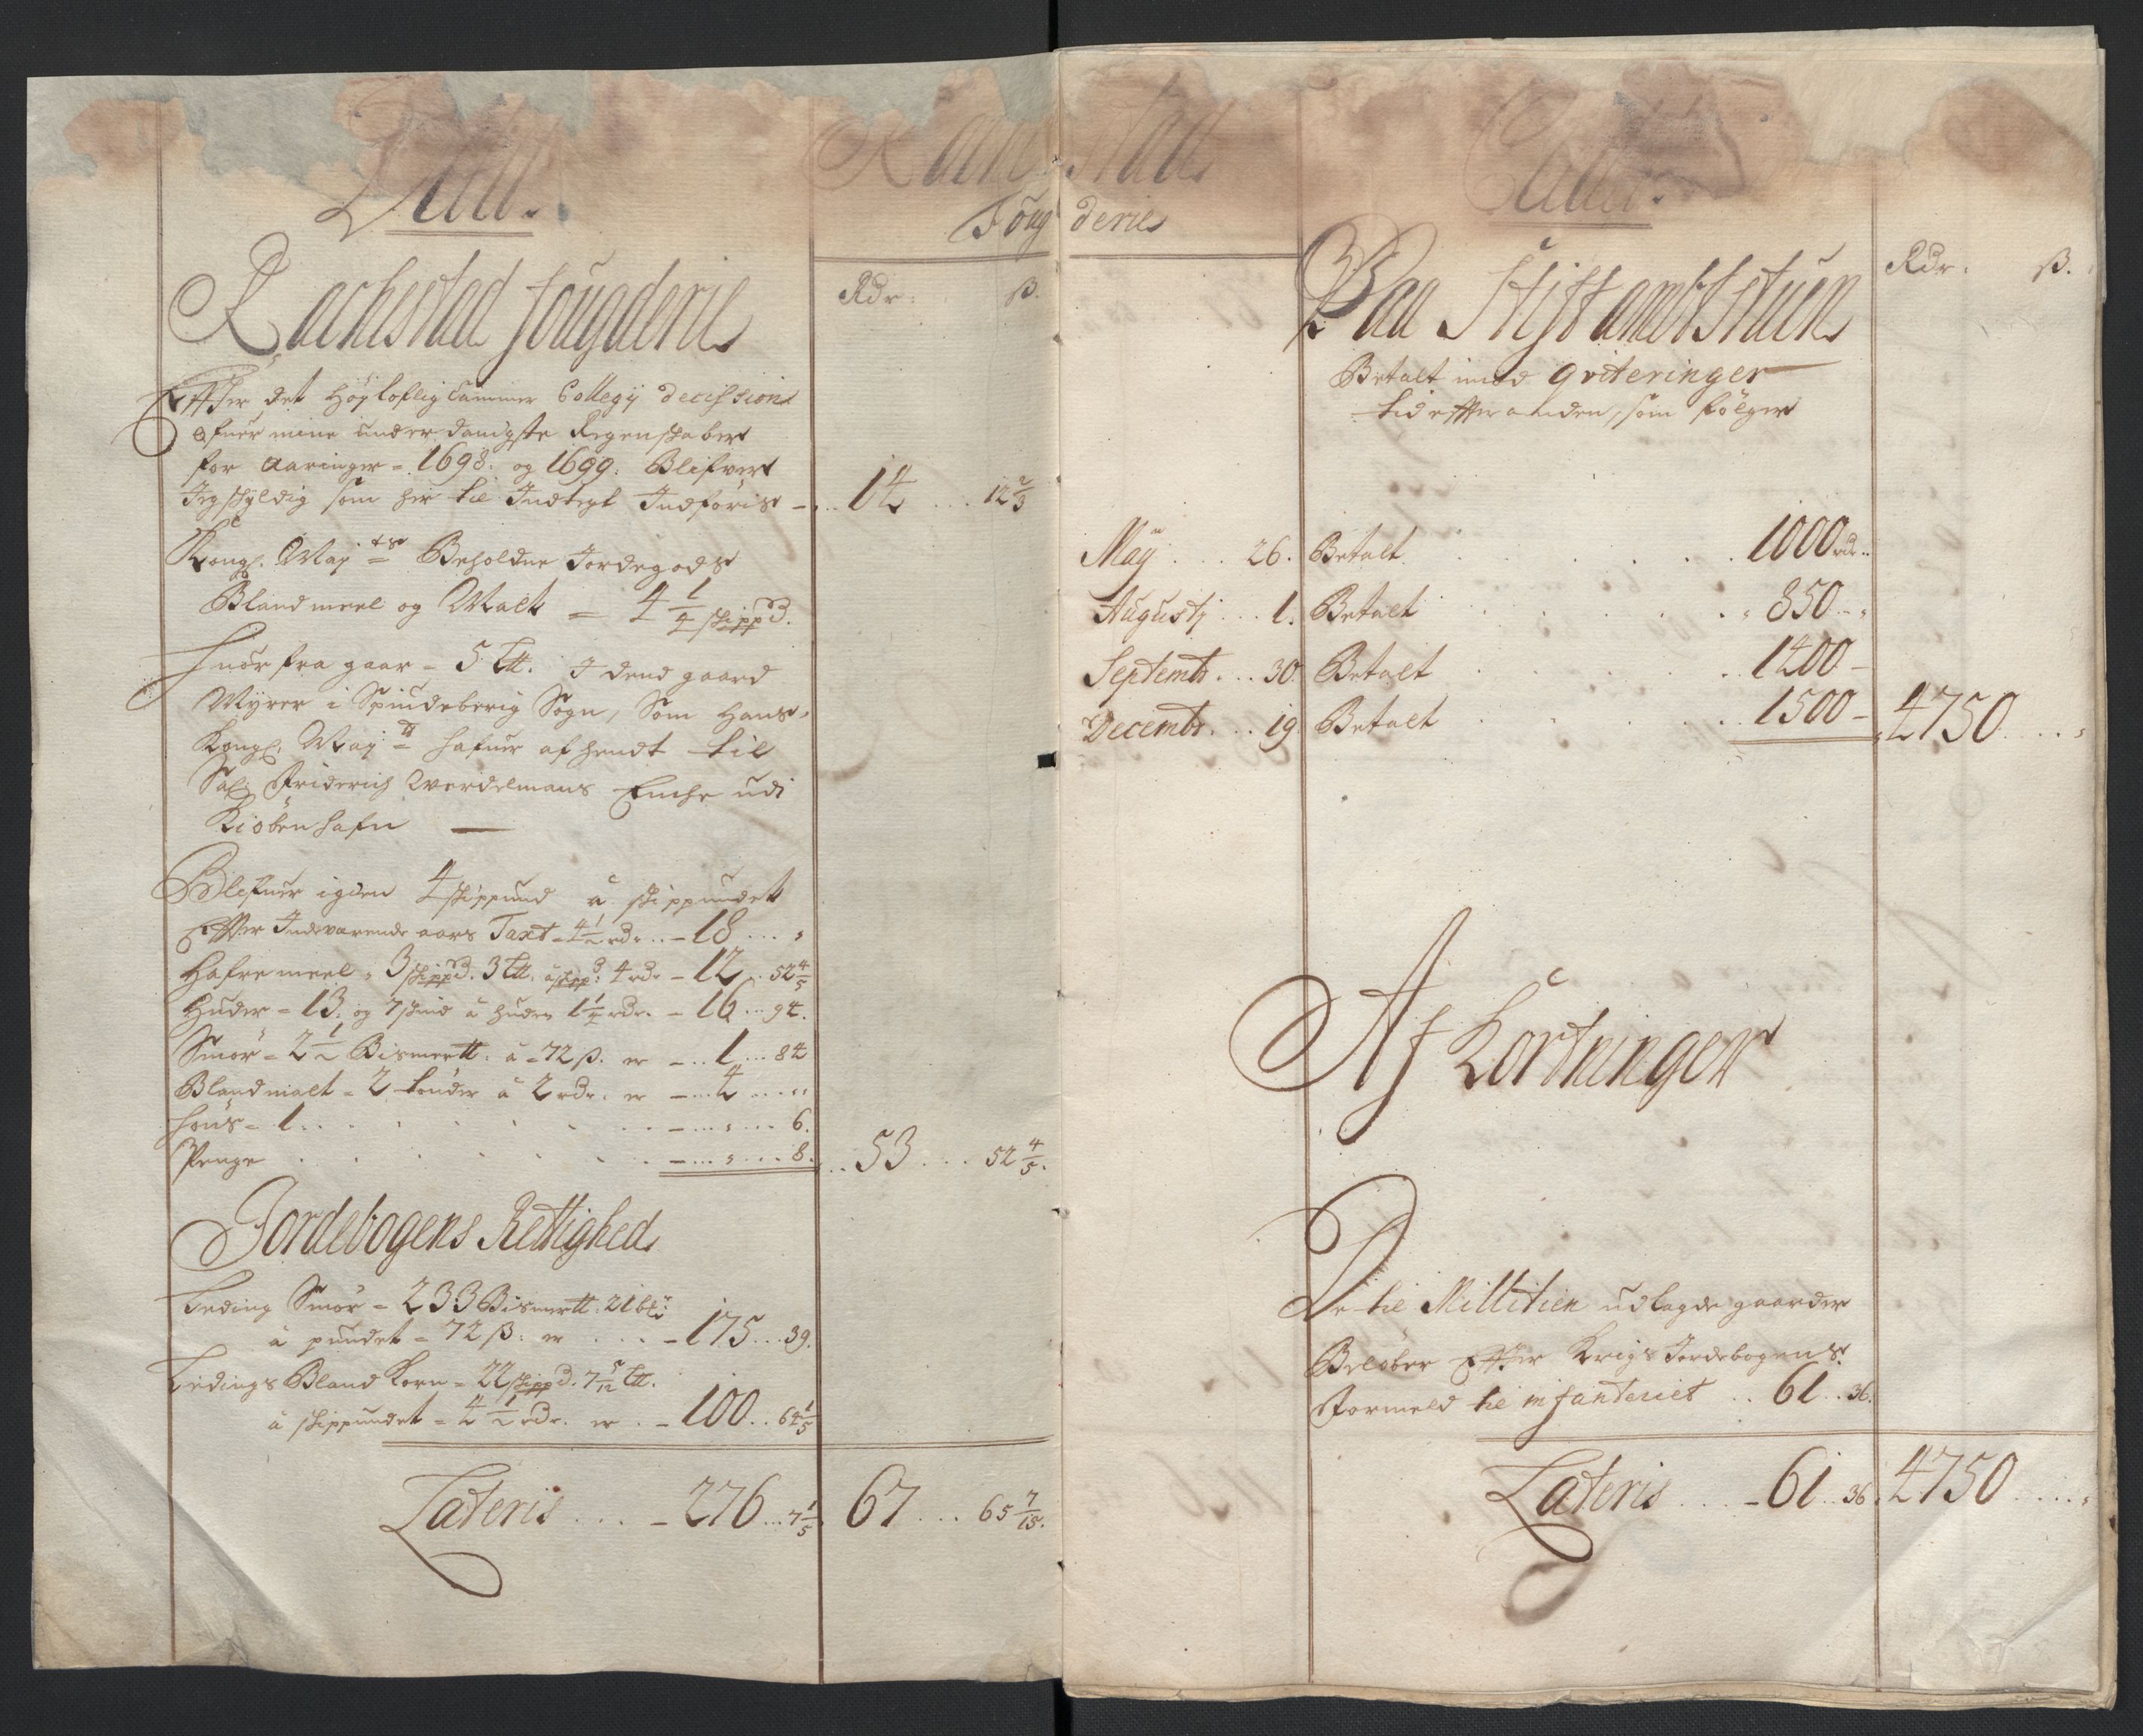 Debet.
Rachestad
Fougderie
Rachestad fougderie
Rdr: ß.
Effter det Høyloflig Cammer Collegy decission
ofuer mine underdanigste Regenskaber
for aaringer = 1698: og 1699: Blifver
Jeg skyldig som her til Indtegt Indføris - ... 14 ... 12 2/3
Kongl. May ts Beholdne Jordegods
Bland meel og Malt = 4 1/4 skippd.
huorfra gaar = 5 ltt. I dend gaard
Myrer i Spindeberig Sogn, Som Hans
Kongl. May tt hafuer afhendt til
Sal. Friderich Werdelmans Enche udi
Kiøbenhafn —
Blefuer igien 4 skippund a skippundet
Effter Indeværende aars Taxt = 4 1/2 rdr .. - 18 ... "
Hafre meel = 3 skippd. 3 ltt. a skippd: 4 rdr - 12 .. 52 4/5
Huder = 13: og 7 skind a huden 1 1/4 rdr. - 16 ... 94.
Smør = 2 1/2 Bismertt: a = 72 ß. er - .. 1 ... 84
Bland malt = 2 tønder a 2 rdr. er - ... 4 ... "
høns = 1 . . . - ... " ... 6.
Penge . . . - ... " ... 8. ... 53 ... 52 4/5.
Jordebogens Rettighed
Leding Smør = 233 Bismertt: 21 bli
a pundet = 72 ß: er . . . - 175 ... 39.
Ledings Bland Korn = 22 skippd. 7 5/12 ltt.
a skippundet = 4 1/2 rdr. er . - 100 .. 64 1/5
Lateris .... - 276 ... 7 1/5. 67 ... 65 7/15.
Paa Stiftambtstuen
Rdr. ß.
Betalt imod qviteringer
tid effter anden, som følger
May .... 26. Betalt . . . 1000 rdr ..
Augustj ... 1. Betalt . . . 850 - "
Septembr. ... 30. Betalt . . . 1400 -
Decembr. ... 19. Betalt . . . 1500 - 4750 .... "
Af Kortninger
De til Millitien udlagde gaarder
Beløber Effter Krigs Jordebogens
Formeld til infanteriet .. 61 .. 36.
Lateris .... - 61 .. 36. 4750 .... "